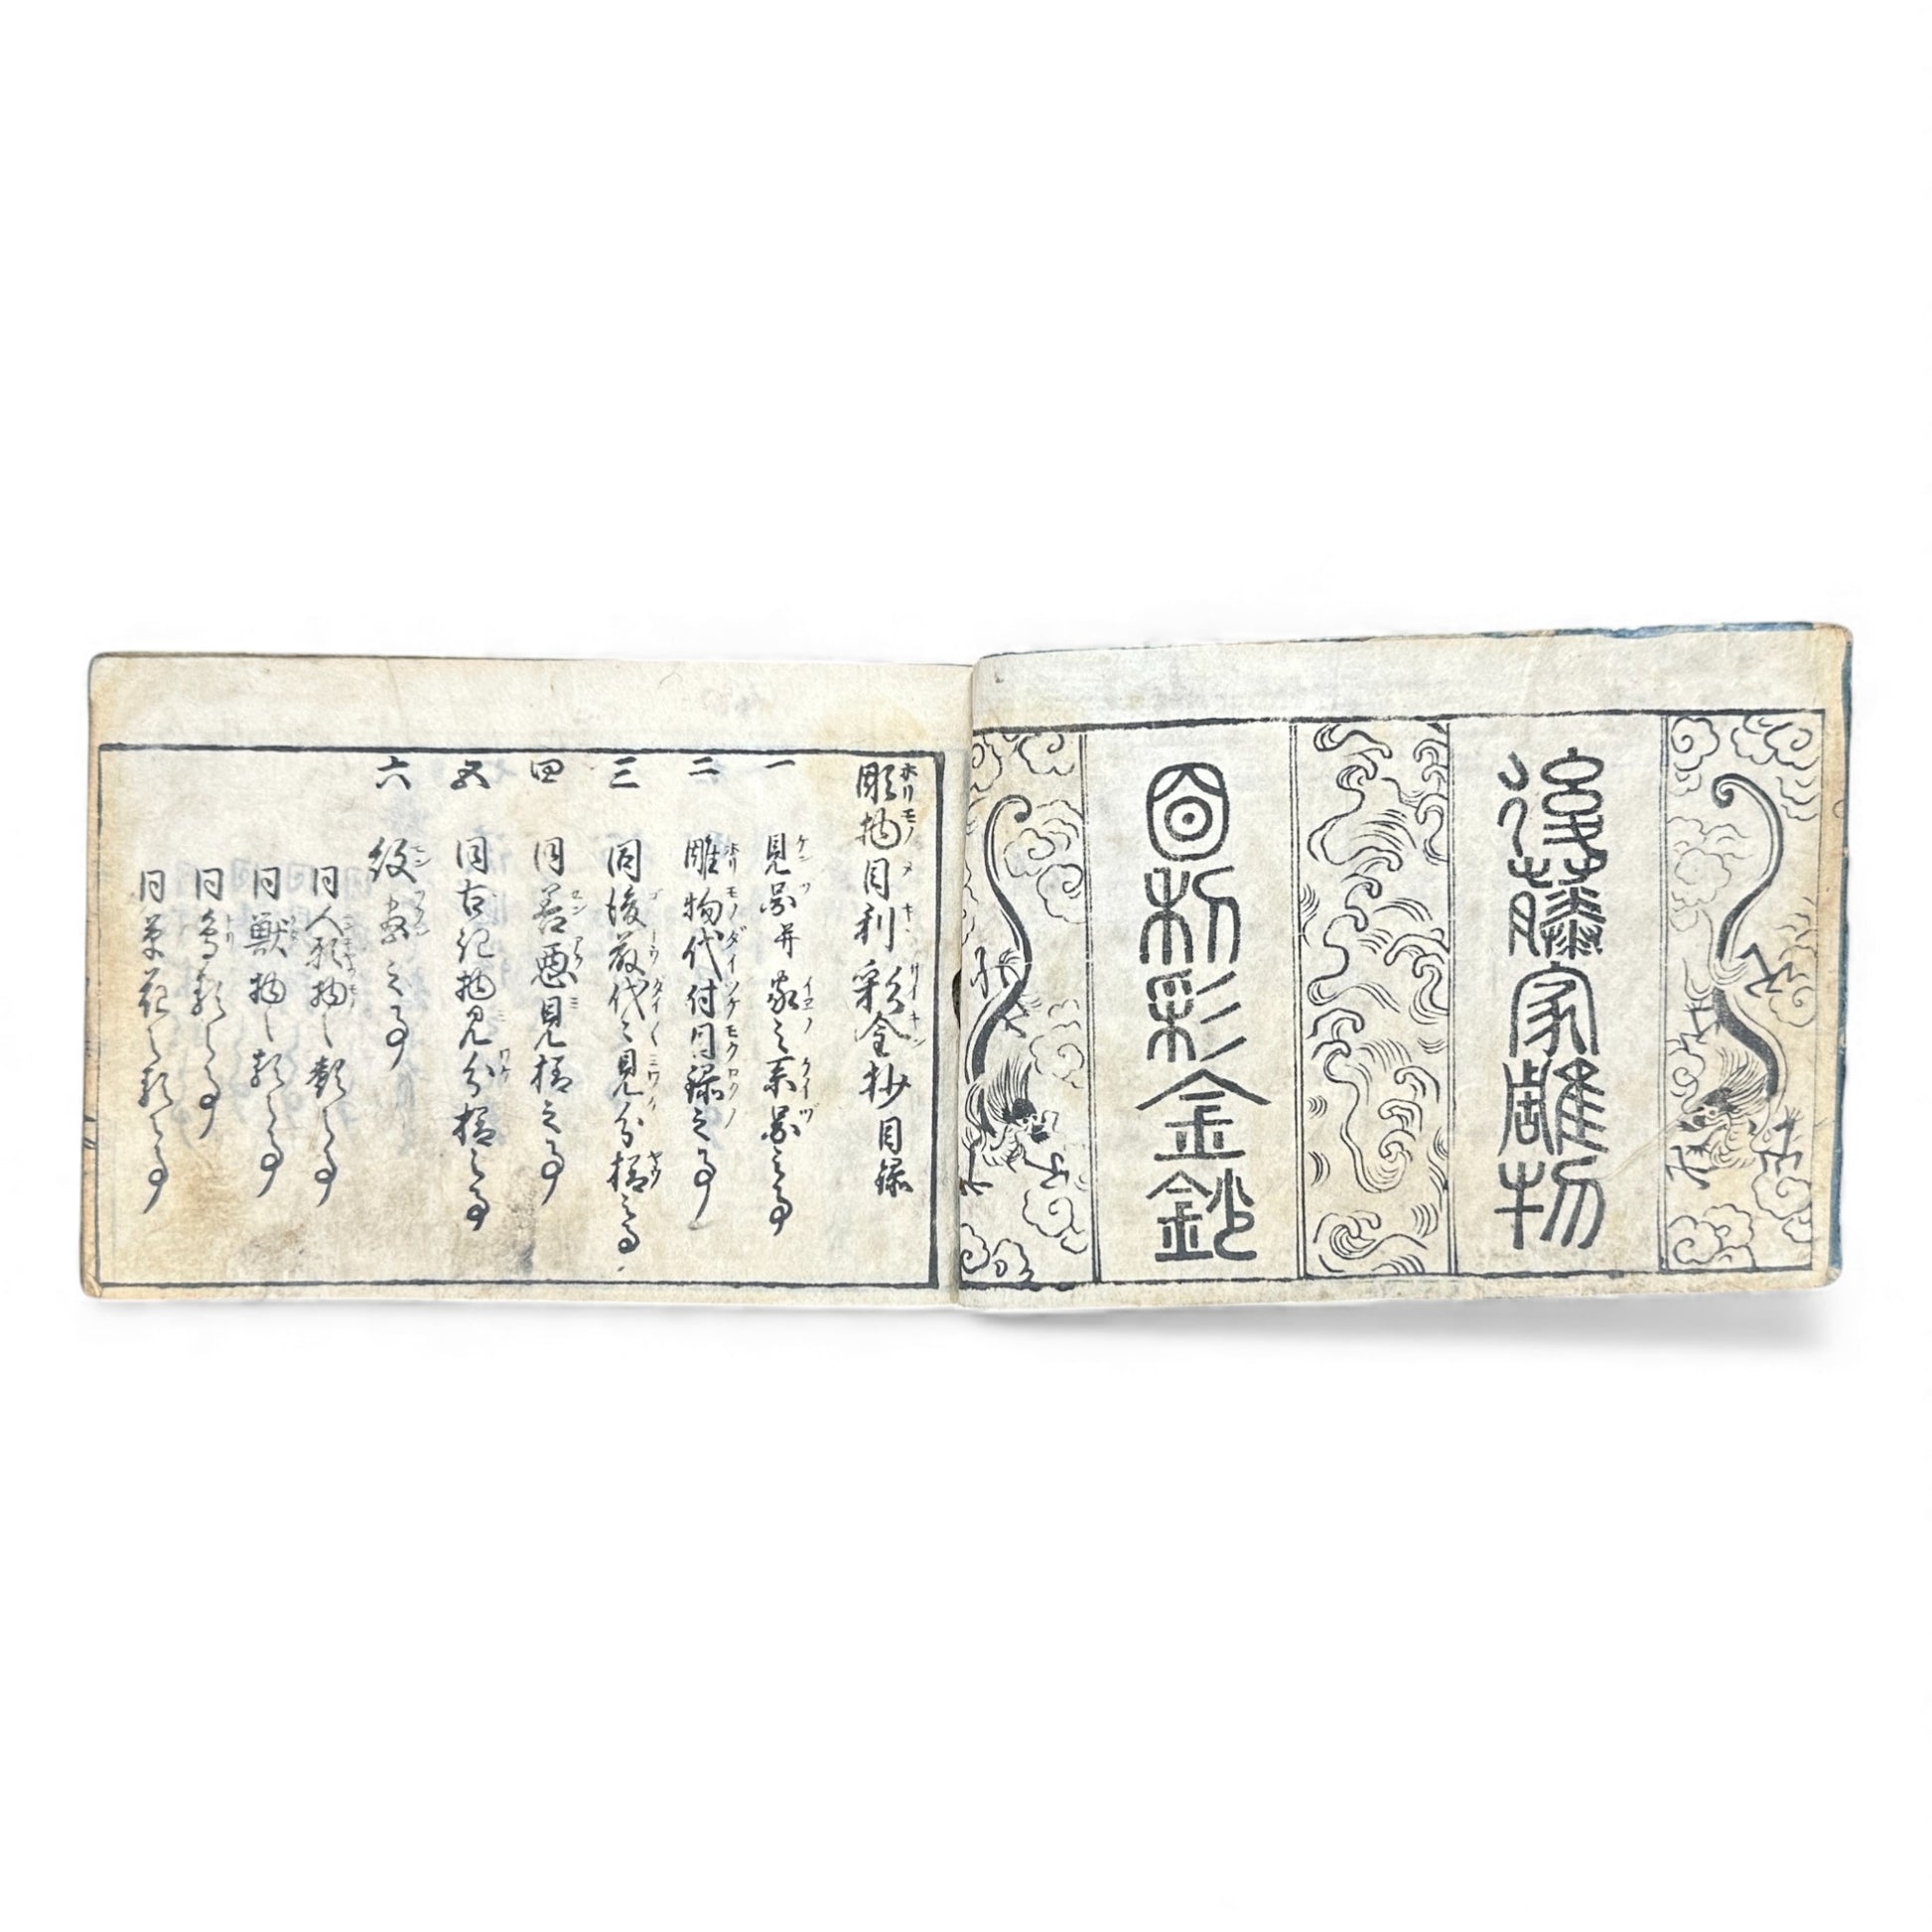 後藤家雕物
目利彩金鈔
彫物目利彩金抄目録
一 見図并家之系図之事
二 雕物代付目録之事
三 同後藤代々見分様之事
四 同善悪見様之事
五 同古作物見分様之事
六 紋尽之事
同人形物之類之事
同獣物之類之事
同鳥類之事
同草花之類之事